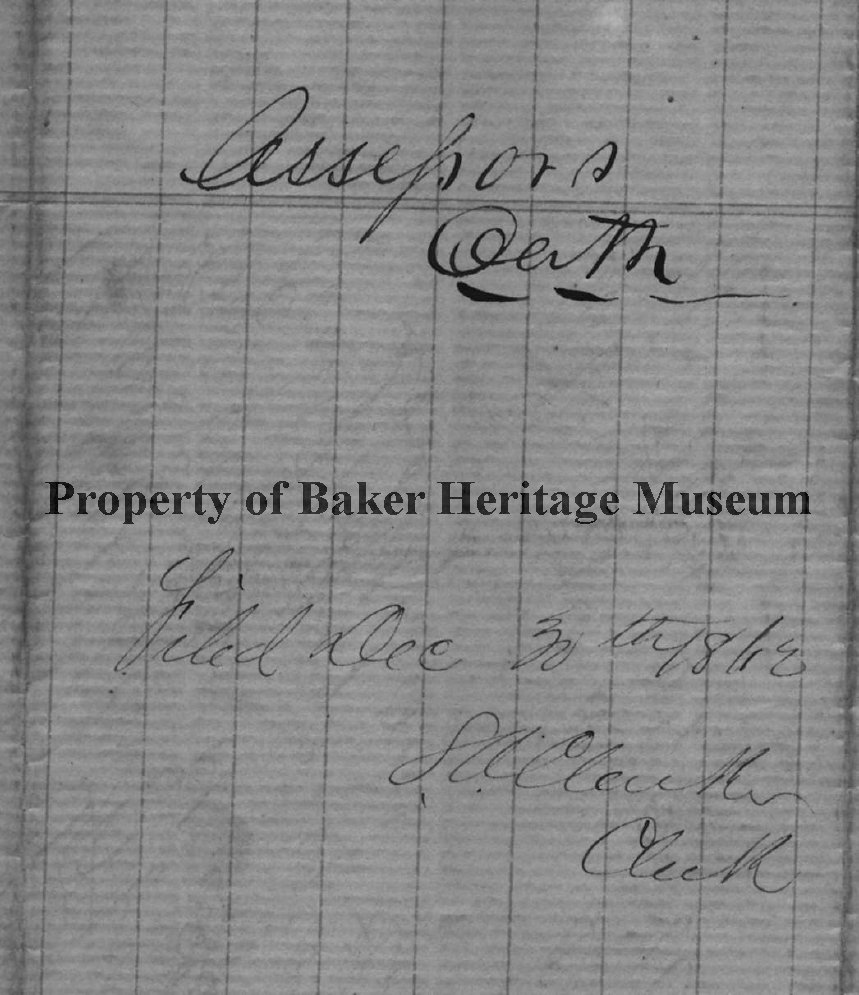 Assessors
Oath
Property of Baker Heritage Museum
Filed Dec 30th 1862
S. A. Clarke
Clerk